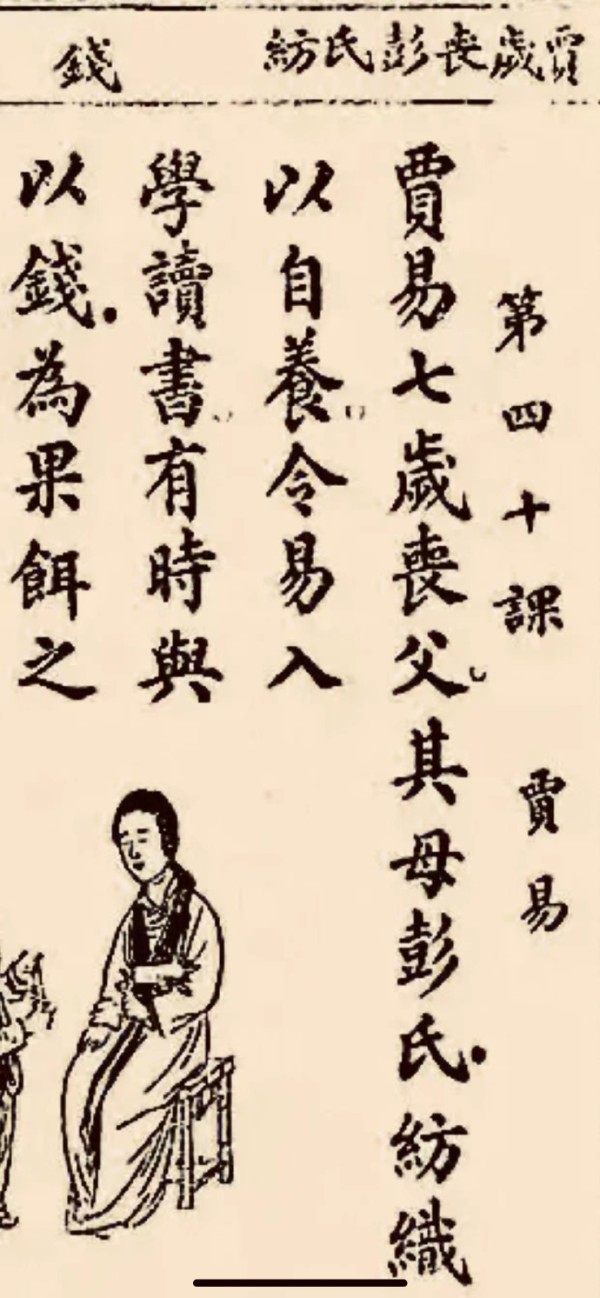 賈歲喪彭氏紡
錢
第四十課 賈易
賈易七歲喪父。其母彭氏.紡織
以自養。令易入
學讀書。有時與
以錢.為果餌之